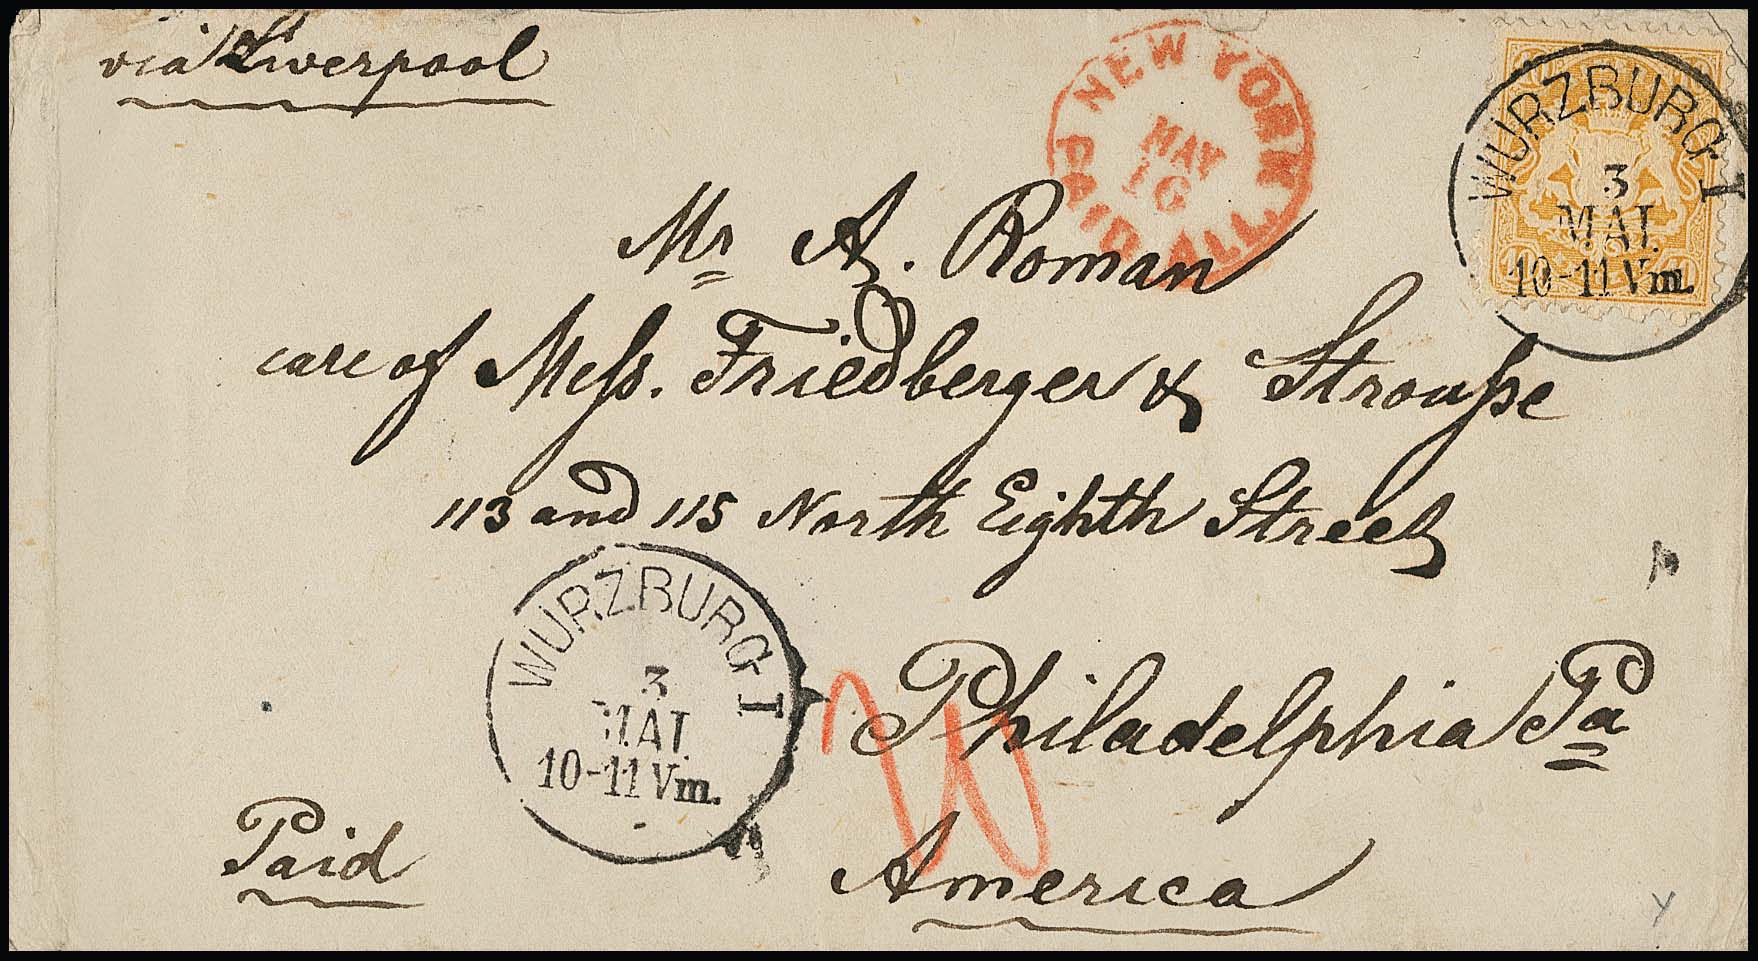 via Liverpool
NEW YORK
MAY
16
PAID ALL.
WURZBURG I
3
MAI.
10-11 Vm.
Mr A. Roman
care of Meſs. Friedberger & Strouſse
113 and 115 North Eighth Street
WURZBURG I
3
MAI.
10-11 Vm.
Philadelphia Pa
Paid
America